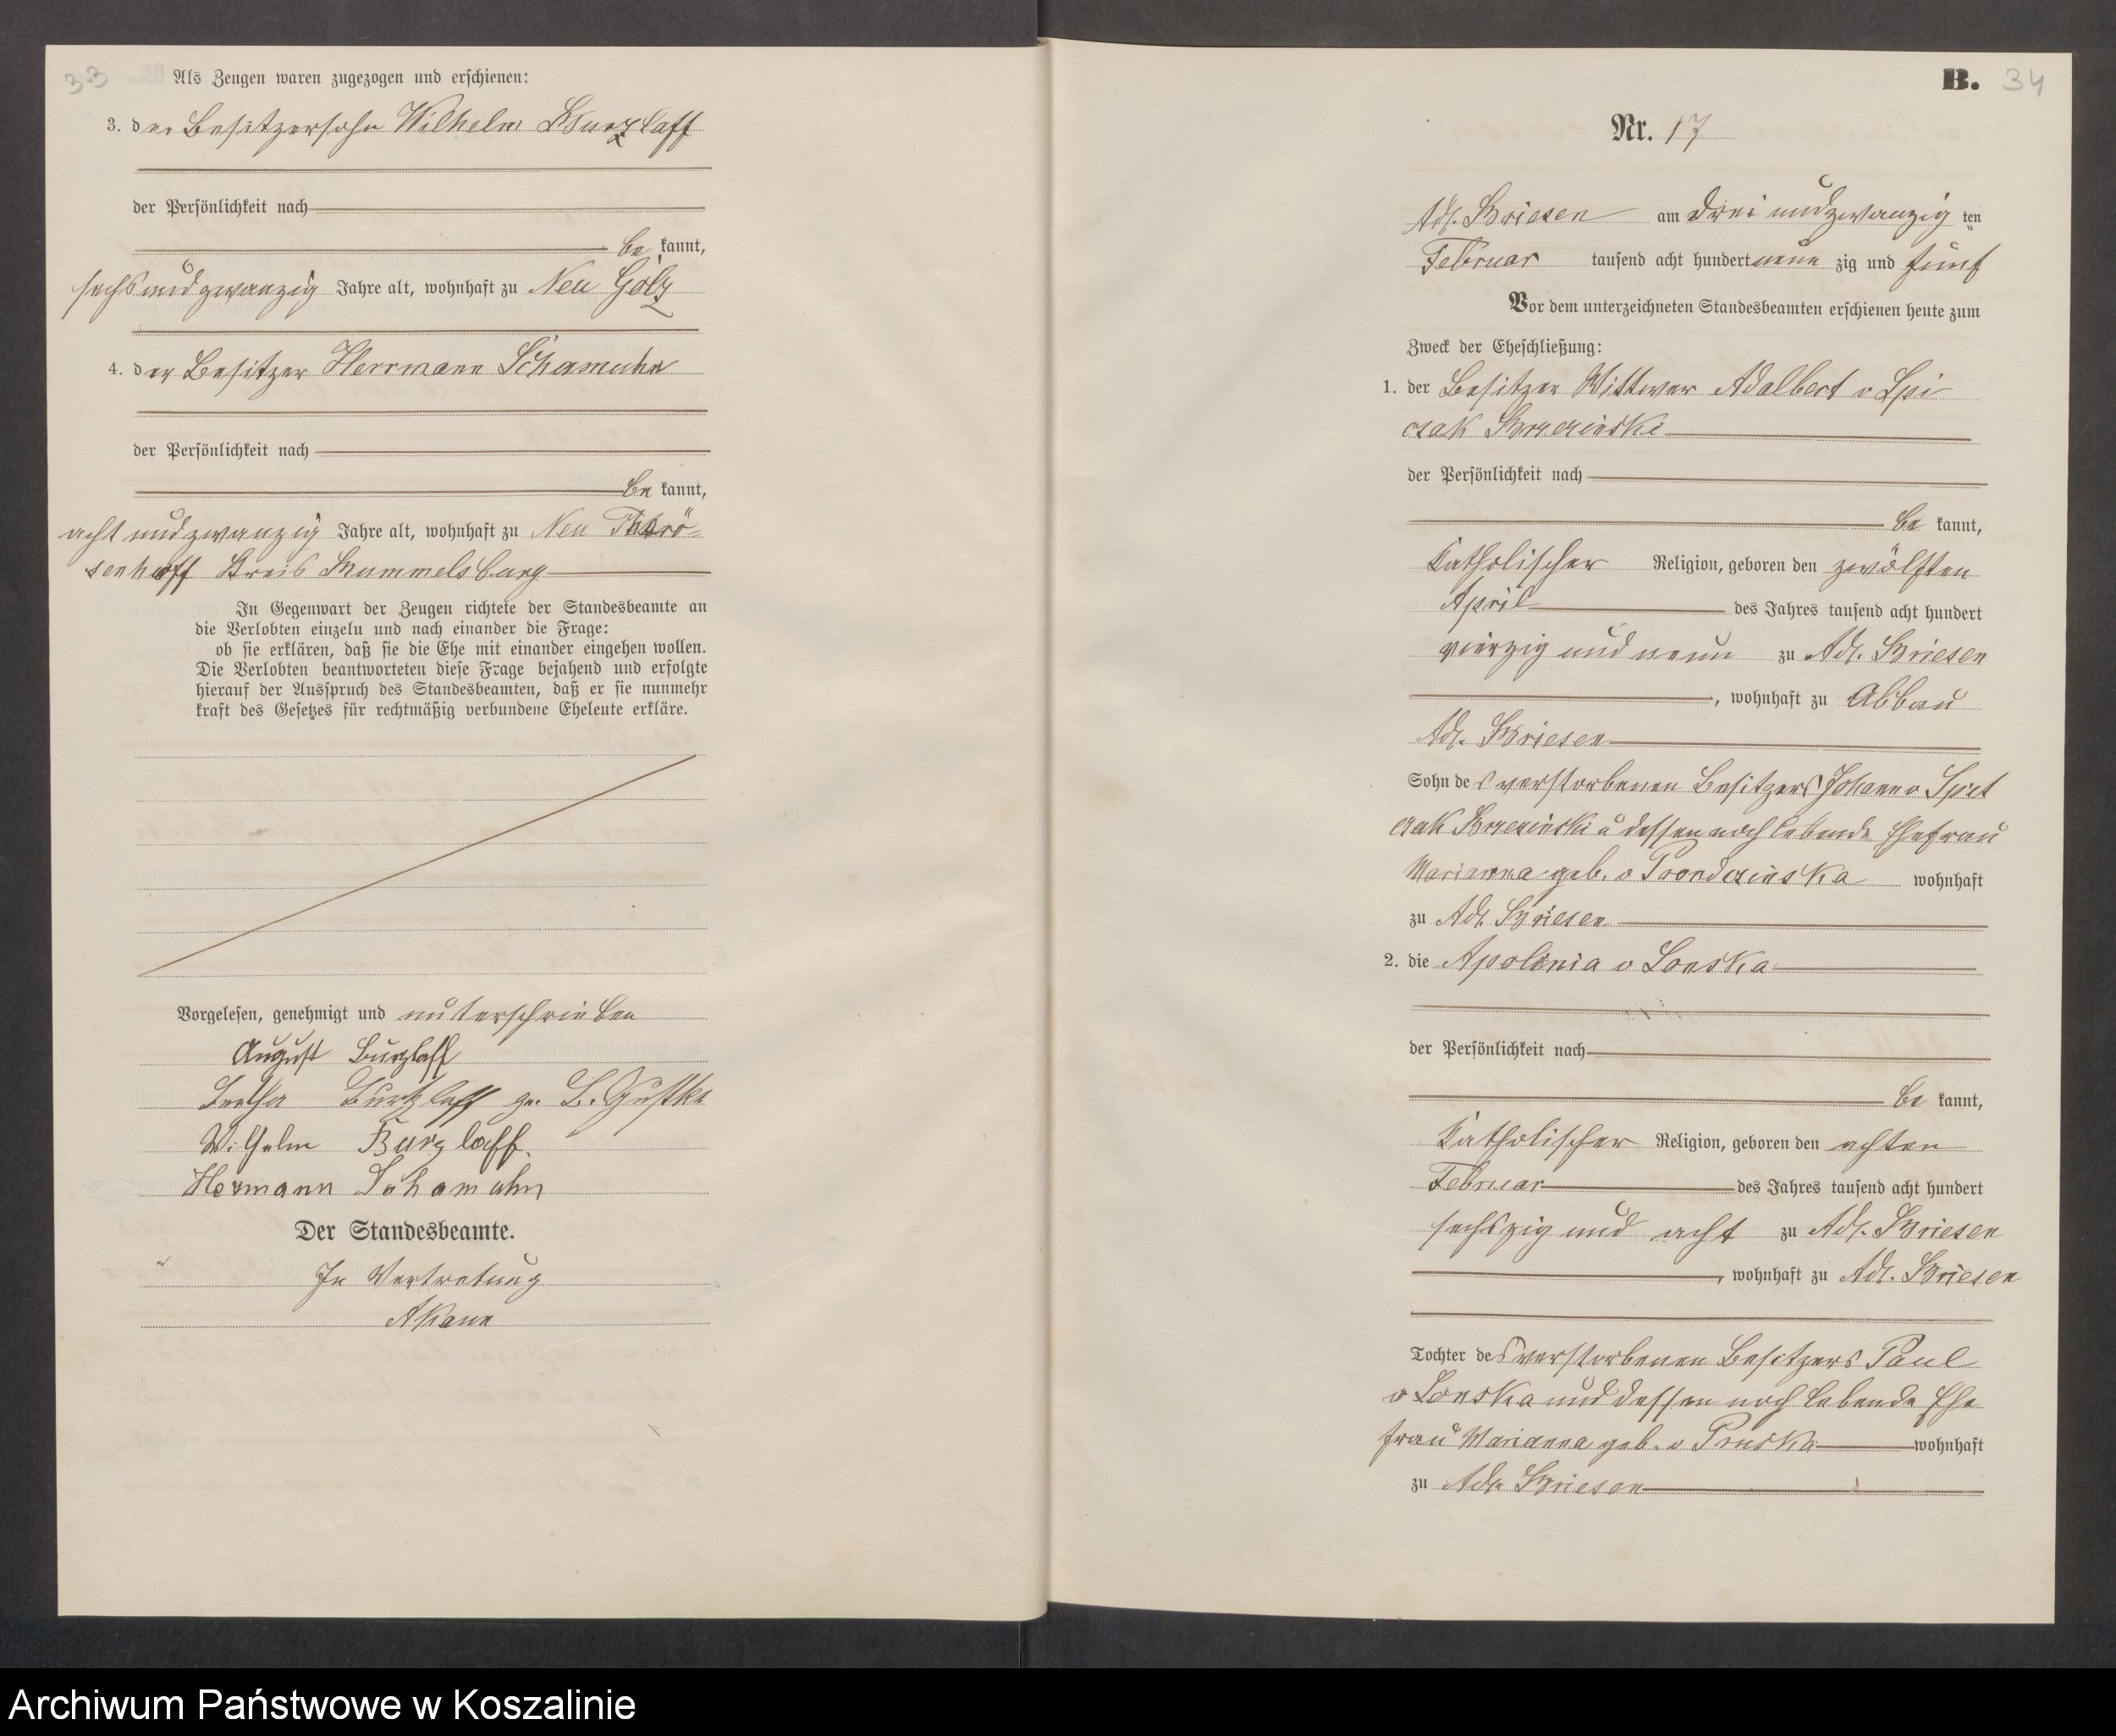 33
Als Zeugen waren zugezogen und erschienen:
3. der Besitzersohn Wilhelm Burzlaff
der Persönlichkeit nach
be kannt,
sechsundzwanzig Jahre alt, wohnhaft zu Neu Golz
4. der Besitzer Herrmann Schamuhn
der Persönlichkeit nach
be kannt,
acht undzwanzig Jahre alt, wohnhaft zu Neu
senhoff Kreis Rummelsburg
In Gegenwart der Zeugen richtete der Standesbeamte an
die Verlobten einzeln und nach einander die Frage:
ob sie erklären, daß sie die Ehe mit einander eingehen wollen.
Die Verlobten beantworteten diese Frage bejahend und erfolgte
hierauf der Ausspruch des Standesbeamten, daß er sie nunmehr
kraft des Gesetzes für rechtmäßig verbundene Eheleute erkläre.
Vorgelesen, genehmigt und unterschrieben
August Burzlaff
Bertha Burtzlaff ge. B. Gustke
Wilhelm Burzlaff.
Hermann Schamuhn
Der Standesbeamte.
In Vertretung
AKann
B. 34
Nr. 17
Adl. Briesen am drei undzwanzig ten
Februar tausend acht hundert neun zig und fünf
Vor dem unterzeichneten Standesbeamten erschienen heute zum
Zweck der Eheschließung:
1. der Besitzer Wittwer Adalbert v Spi
czak Brzezinski
der Persönlichkeit nach
be kannt,
Katholischer Religion, geboren den zwölften
April des Jahres tausend acht hundert
vierzig und neun zu Adl. Briesen
, wohnhaft zu Abbau
Adl. Briesen
Sohn des verstorbenen Besitzers Johann v Spit
czak Brzezinski u dessen noch lebende Ehefrau
Marianna geb. v Prondzinska wohnhaft
zu Adl. Briesen
2. die Apolinia v Lonska
der Persönlichkeit nach
be kannt,
Katholischer Religion, geboren den achten
Februar des Jahres tausend acht hundert
sechszig und acht zu Adl. Briesen
, wohnhaft zu Adl. Briesen
Tochter des verstorbenen Besitzers Paul
v Lonska und dessen noch lebende Ehe
frau Marianna geb. v Pruska wohnhaft
zu Adl. Briesen
Archiwum Państwowe w Koszalinie